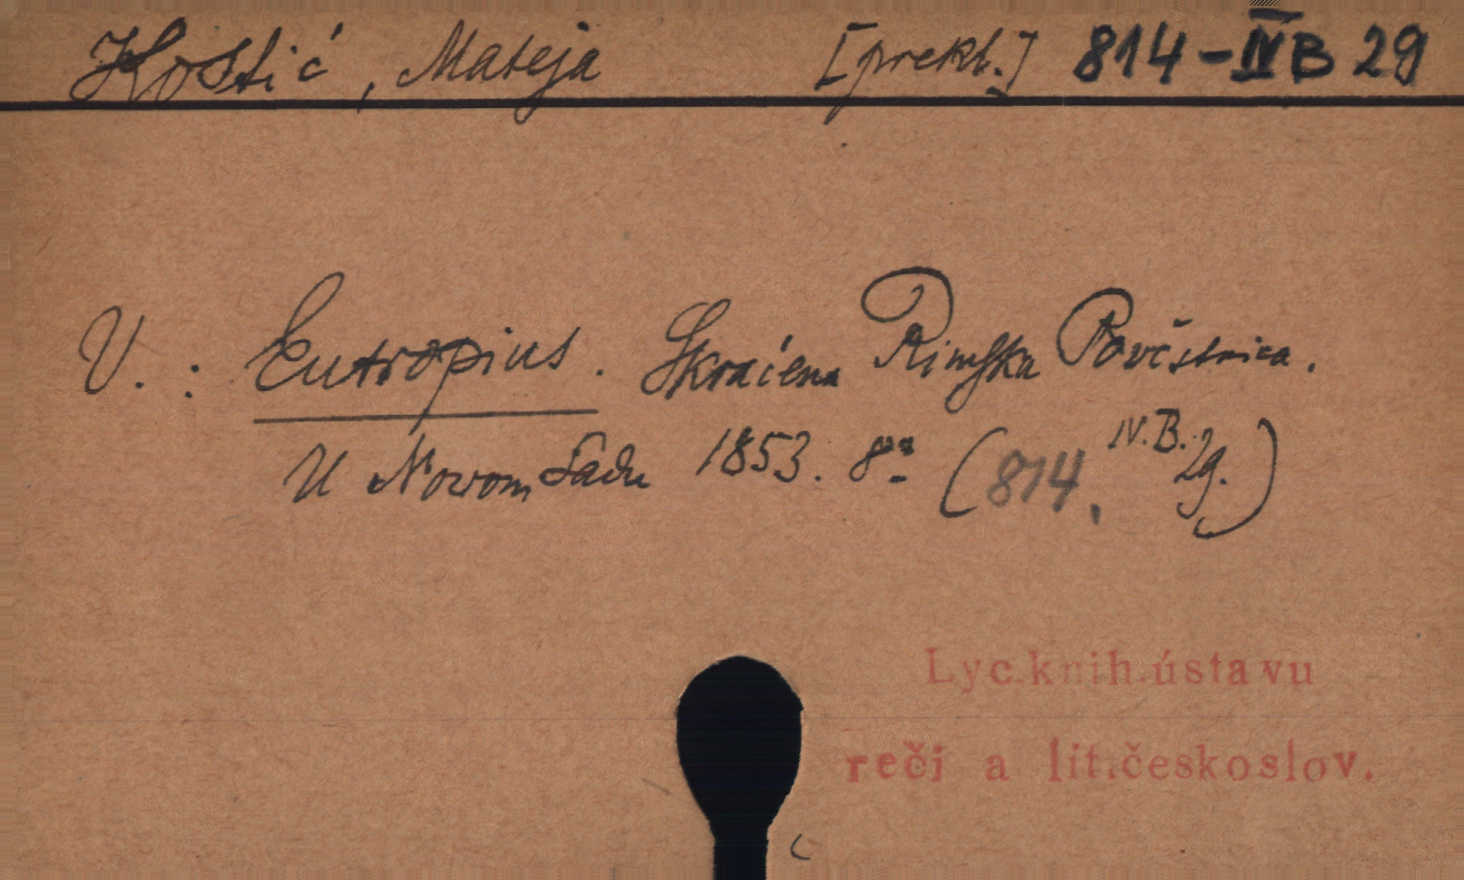 Kostić, Mateja [prekl.] 814-IVB 29
V.: Eutropius. Skraćena Rimska Povčstnica.
U Novom Sadu 1853. 8° (814. IV.B. 29.)
Lyc.knih.ústavu
reči a lit.českoslov.